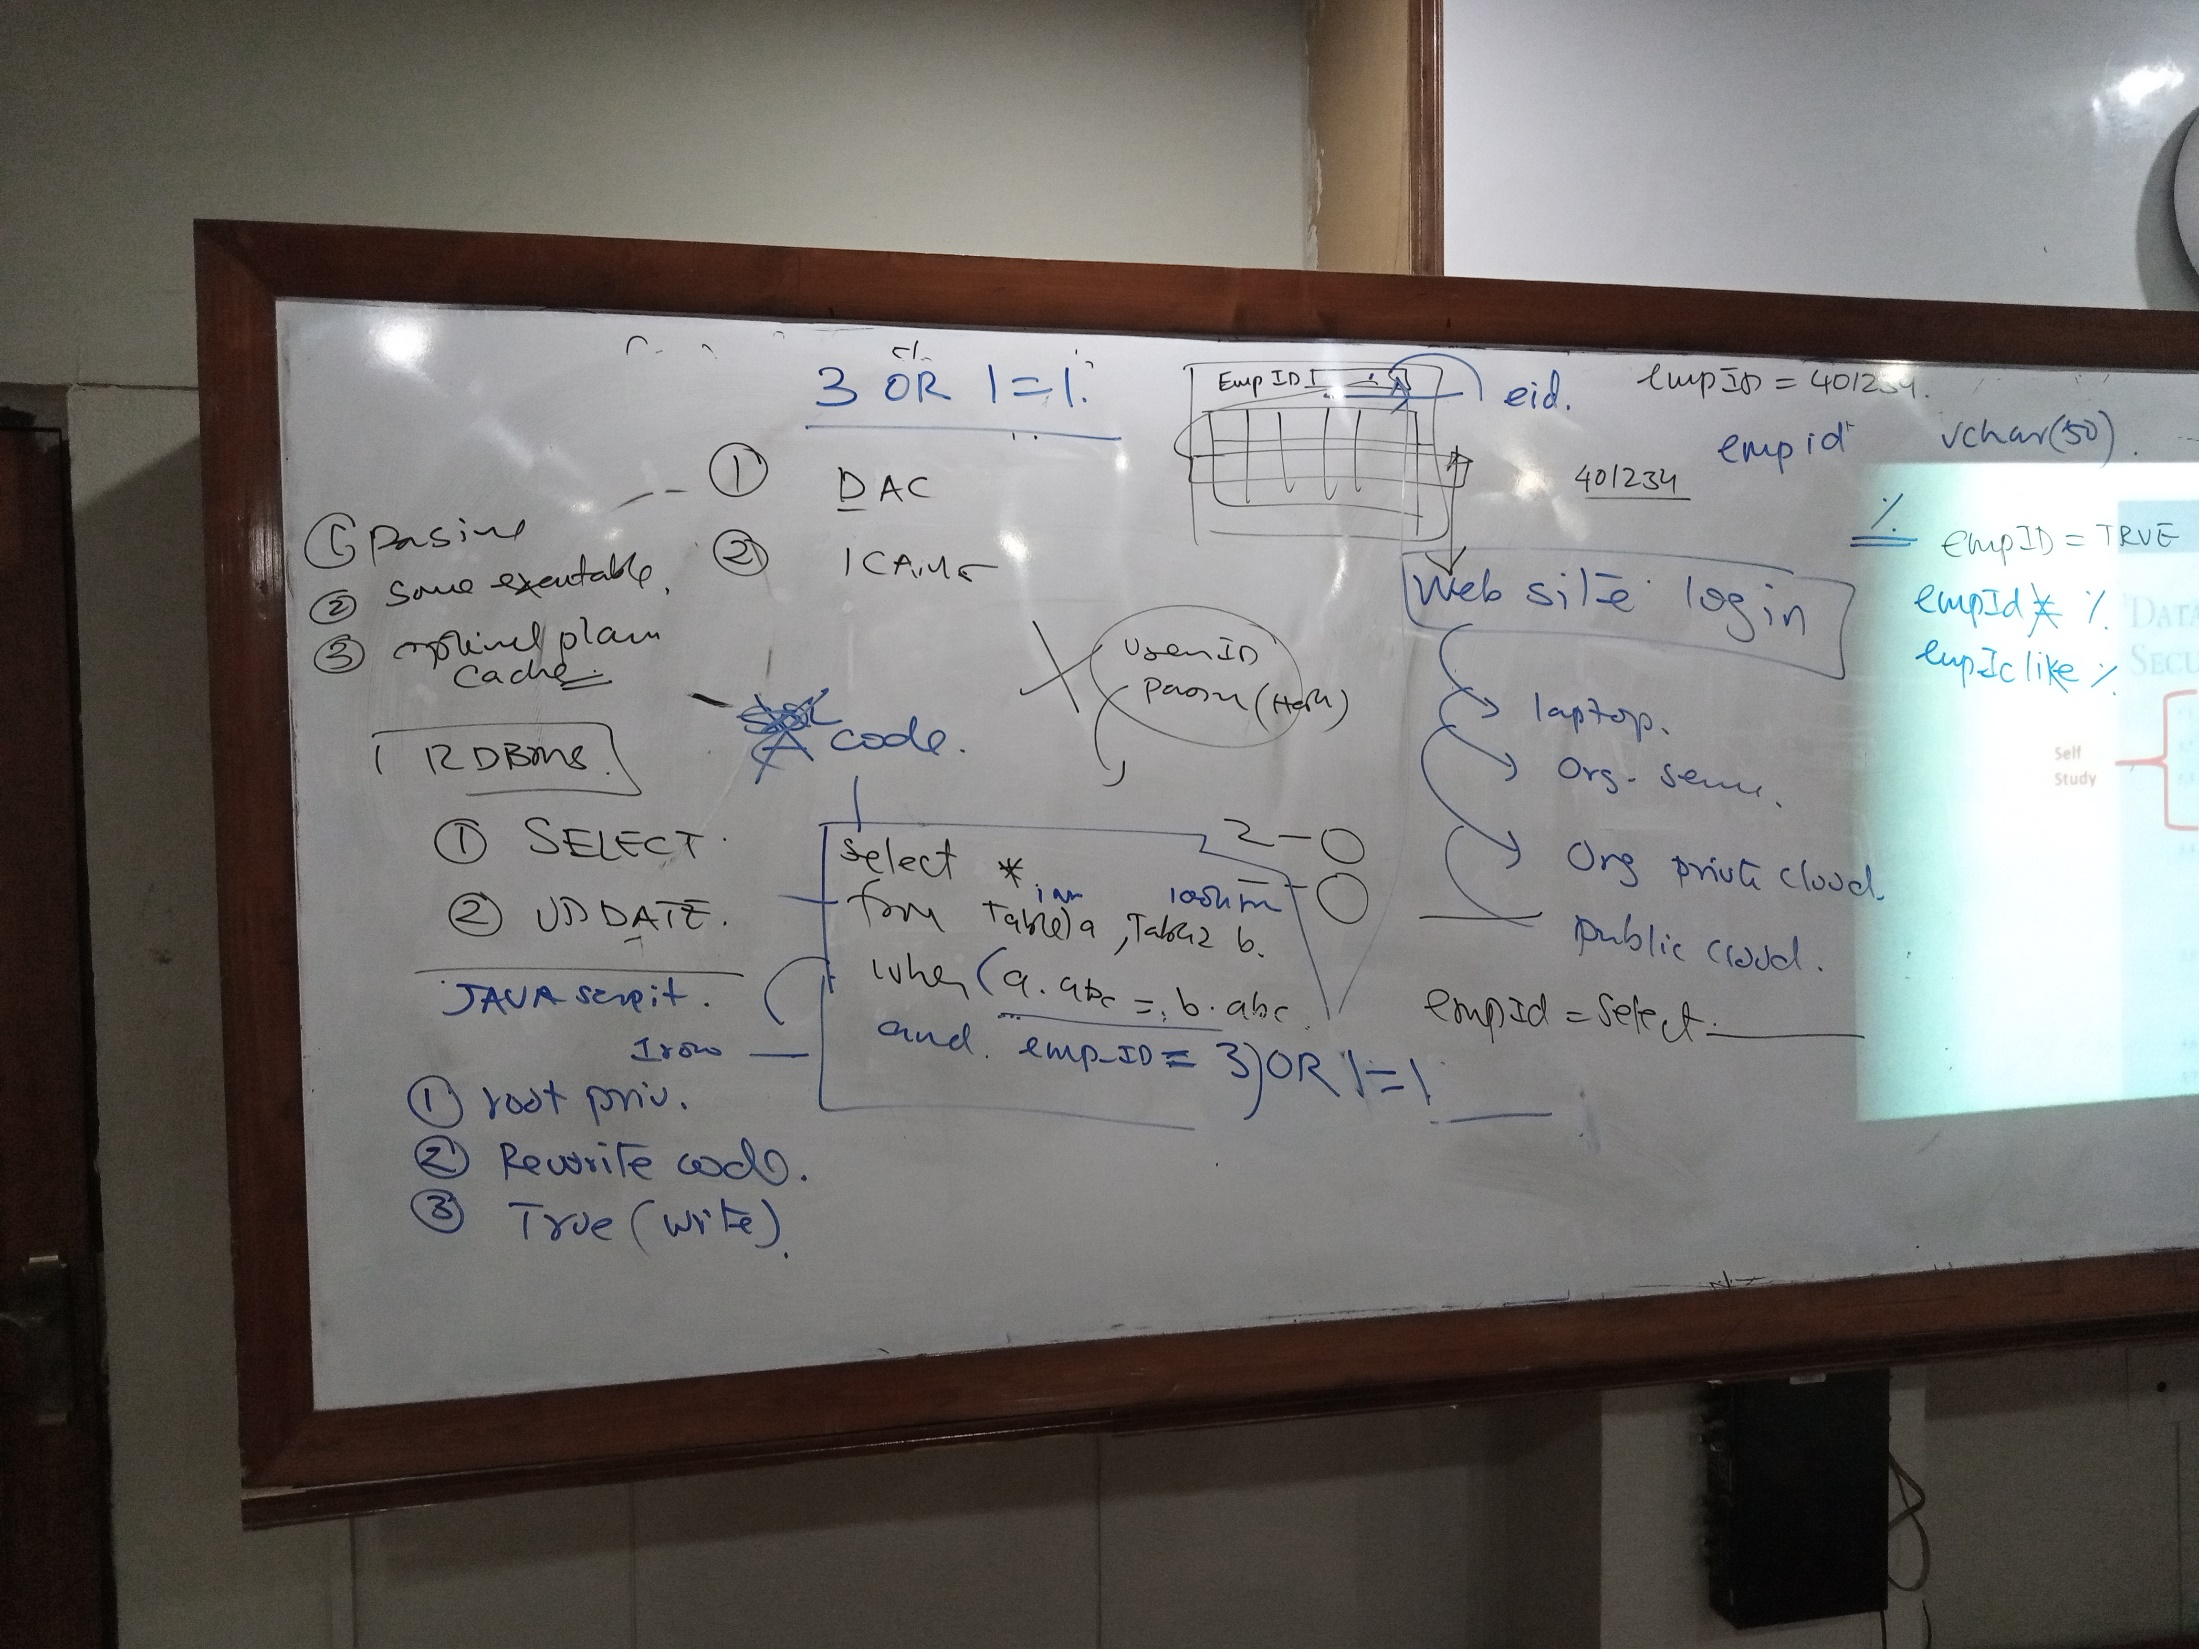 3 OR 1=1
① DAC
②
② Some executable,
③ plan
Cache
RDBMS.
① SELECT
② UPDATE.
JAVA script.
1 row
① root priv.
② Rewrite code.
③ True (write)
code.
Select *
from Table1 a, Table2 b.
when (a.abc = b.abc
and. emp_ID = 3) OR 1=1
2 - O
User ID
(Hash)
Emp ID
eid.
empID = 401234.
empid vchar(50).
401234
Web site login
laptop.
Org.
Org private cloud.
public cloud.
empId = Select
% empID = TRUE
empId * %
empId like %
DATA
SECU
Self
Study